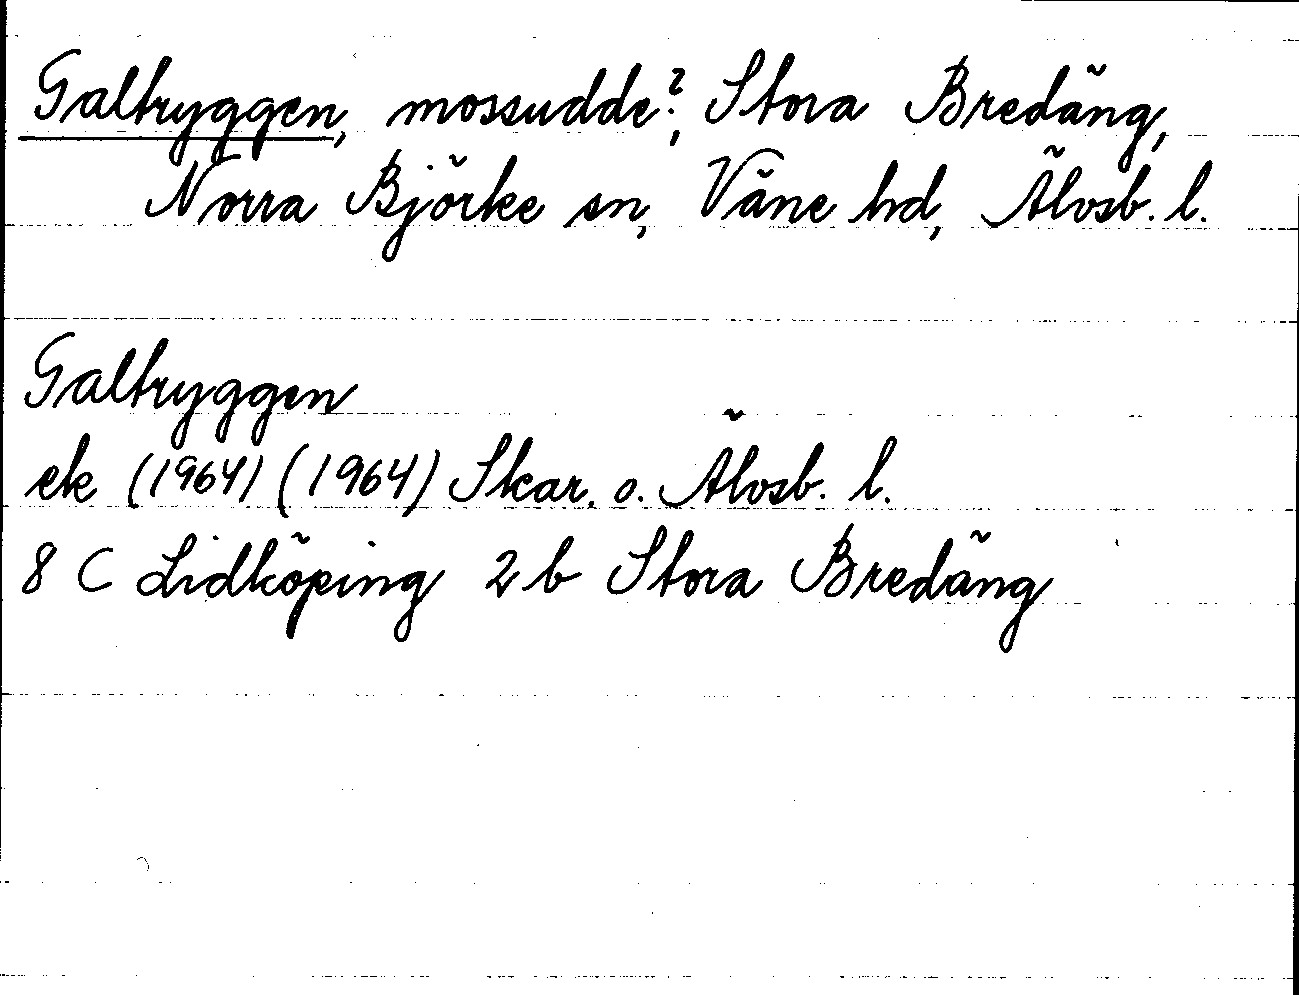 Galtryggen, mossudde?, Stora Bredäng,
Norra Björke sn, Väne hd, Älvsb. l.
Galtryggen
ek (1964) (1964) Skar. o. Älvsb. l.
8 C Lidköping 2 b Stora Bredäng